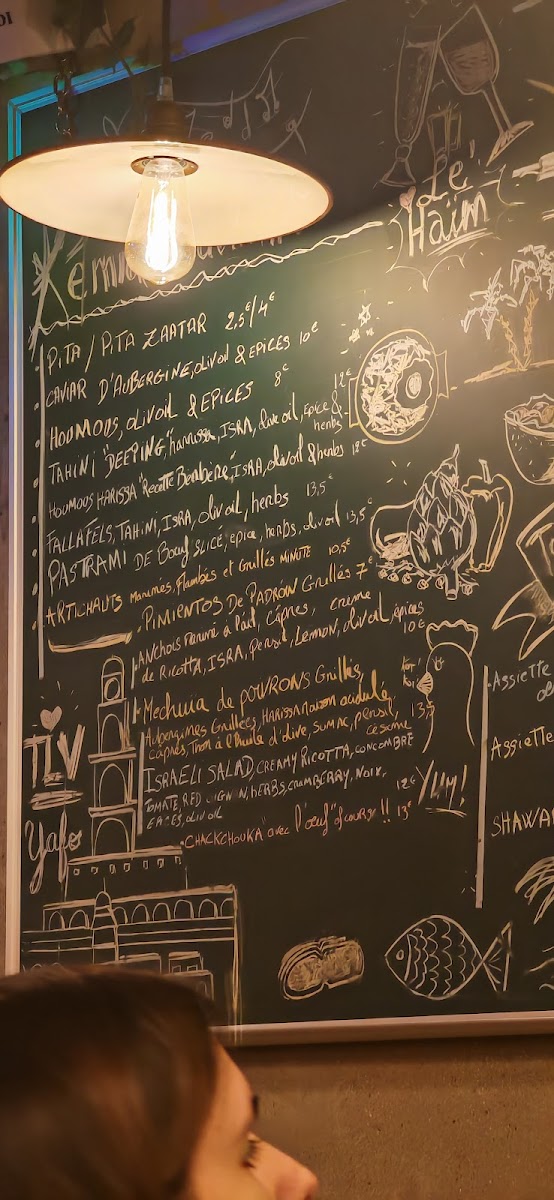 Le'
Haïm
PITA / PITA ZAATAR 2,5€/4€
CAVIAR D'AUBERGINE, olivoil & EPICES 10€
HOUMOUS, olivoil & EPICES 8€
TAHINI "DEEPING" harissa, ISRA, olive oil, épice & 12€
herbs
HOUMOUS HARISSA "Recette Berbère", ISRA, olivoil & herbs 12€
FALLAFELS, TAHINI, ISRA, olivoil, herbs 13,5€
PASTRAMI DE Boeuf SLICÉ, épice, herbs, olivoil 13,5€
ARTICHAUTS Marinés, flambés et Grillés MINUTE 10,5€
PIMIENTOS DE PADRÓN Grillés 7€
ANCHOIS Mariné à l'ail, Câpres, crème
de Ricotta, ISRA, Persil, Lemon, olivoil, épices
10€
Mechuia de POIVRONS Grillés,
Aubergines Grillées, HARISSA maison acidulé,
CAPRES, Thon à l'huile d'olive, SUMAC, PERSIL, 13,5
CÉSAME
ISRAELI SALAD, CREAMY RICOTTA, CONCOMBRE
TOMATE, RED OIGNON, HERBS, CRAMBERRY, NOIX,
EPICES, OLIVOIL 12€
"CHACKCHOUKA" avec l'oeuf of course !! 13€
TLV
Yafo
Yum!
Assiette
Assiette
SHAWA